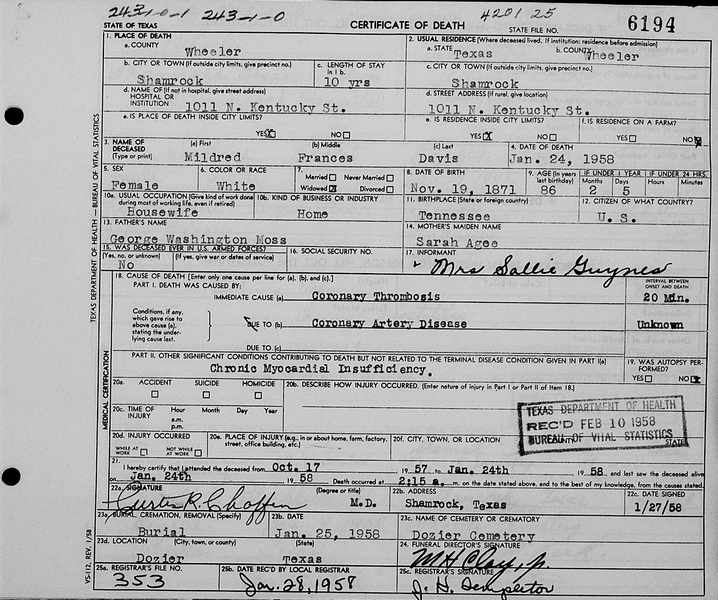 243-0-1 243-1-0
4201 25
6194
STATE OF TEXAS
CERTIFICATE OF DEATH
STATE FILE NO.
1. PLACE OF DEATH
a. COUNTY
Wheeler
2. USUAL RESIDENCE (Where deceased lived. If institution: residence before admission)
a. STATE Texas b. COUNTY Wheeler
b. CITY OR TOWN (If outside city limits, give precinct no.)
Shamrock
c. LENGTH OF STAY in 1 b.
10 yrs
c. CITY OR TOWN (If outside city limits, give precinct no.)
Shamrock
d. NAME OF (If not in hospital, give street address) HOSPITAL OR INSTITUTION
1011 N. Kentucky St.
d. STREET ADDRESS (If rural, give location)
1011 N. Kentucky St.
e. IS PLACE OF DEATH INSIDE CITY LIMITS?
YES X NO
e. IS RESIDENCE INSIDE CITY LIMITS?
YES X NO
f. IS RESIDENCE ON A FARM?
YES NO X
3. NAME OF DECEASED (Type or print)
(a) First (b) Middle (c) Last
Mildred Frances Davis
4. DATE OF DEATH
Jan. 24, 1958
5. SEX
Female
6. COLOR OR RACE
White
7. Married Never Married
Widowed X Divorced
8. DATE OF BIRTH
Nov. 19, 1871
9. AGE (In years last birthday)
86
IF UNDER 1 YEAR IF UNDER 24 HRS.
Months Days Hours Minutes
2 5
10a. USUAL OCCUPATION (Give kind of work done during most of working life, even if retired)
Housewife
10b. KIND OF BUSINESS OR INDUSTRY
Home
11. BIRTHPLACE (State or foreign country)
Tennessee
12. CITIZEN OF WHAT COUNTRY?
U. S.
13. FATHER'S NAME
George Washington Moss
14. MOTHER'S MAIDEN NAME
Sarah Agee
15. WAS DECEASED EVER IN U.S. ARMED FORCES?
(Yes, no, or unknown) (If yes, give war or dates of service)
No
16. SOCIAL SECURITY NO.
17. INFORMANT
Mrs Sallie Guynes
18. CAUSE OF DEATH [Enter only one cause per line for (a), (b), and (c).]
INTERVAL BETWEEN ONSET AND DEATH
PART I. DEATH WAS CAUSED BY:
IMMEDIATE CAUSE (a) Coronary Thrombosis 20 Min.
Conditions, if any, which gave rise to above cause (a), stating the underlying cause last.
DUE TO (b) Coronary Artery Disease Unknown
DUE TO (c)
PART II. OTHER SIGNIFICANT CONDITIONS CONTRIBUTING TO DEATH BUT NOT RELATED TO THE TERMINAL DISEASE CONDITION GIVEN IN PART I(a)
Chronic Myocardial Insufficiency.
19. WAS AUTOPSY PERFORMED?
YES NO X
20a. ACCIDENT SUICIDE HOMICIDE
20b. DESCRIBE HOW INJURY OCCURRED. (Enter nature of injury in Part I or Part II of Item 18.)
20c. TIME OF INJURY Hour Month Day Year
a.m.
p.m.
20d. INJURY OCCURRED
WHILE AT WORK NOT WHILE AT WORK
20e. PLACE OF INJURY (e.g., in or about home, farm, factory, street, office building, etc.)
20f. CITY, TOWN, OR LOCATION COUNTY STATE
TEXAS DEPARTMENT OF HEALTH
REC'D FEB 10 1958
BUREAU OF VITAL STATISTICS
21. I hereby certify that I attended the deceased from Oct. 17 1957 to Jan. 24th 1958. and last saw the deceased alive
on Jan. 24th 1958 Death occurred at 2:15 a.m. on the date stated above, and to the best of my knowledge, from the causes stated.
22a. SIGNATURE (Degree or title)
Curtis R. Chaffin M.D.
22b. ADDRESS
Shamrock, Texas
22c. DATE SIGNED
1/27/58
23a. BURIAL, CREMATION, REMOVAL (Specify)
Burial
23b. DATE
Jan. 25, 1958
23c. NAME OF CEMETERY OR CREMATORY
Dozier Cemetery
23d. LOCATION (City, town, or county) (State)
Dozier Texas
24. FUNERAL DIRECTOR'S SIGNATURE
M H Clay, Jr.
25a. REGISTRAR'S FILE NO.
353
25b. DATE REC'D BY LOCAL REGISTRAR
Jan. 28, 1958
25c. REGISTRAR'S SIGNATURE
J. H. Templeton
TEXAS DEPARTMENT OF HEALTH — BUREAU OF VITAL STATISTICS
MEDICAL CERTIFICATION
VS-112, REV. 1/58